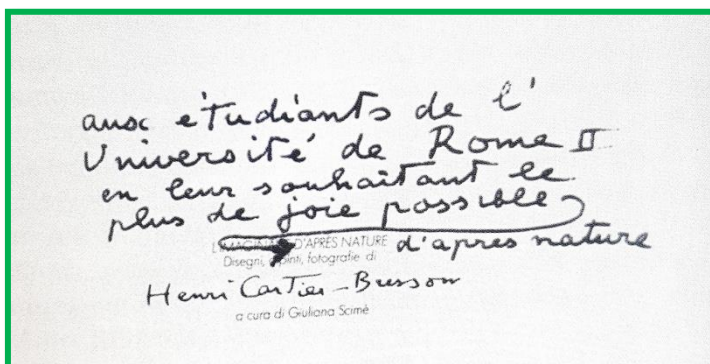 aux étudiants de l'
Université de Rome II
en leur souhaitant le
plus de joie possible
d'après nature
L'IMAGINAIRE D'APRÈS NATURE
Disegni, dipinti, fotografie di
Henri Cartier-Bresson
a cura di Giuliana Scimè